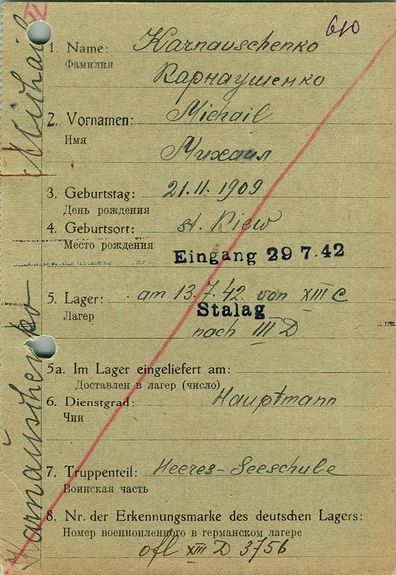 610
1. Name: Karnauschenko
Фамилия Карнаушенко
2. Vornamen: Michail
Имя Михаил
3. Geburtstag: 21.11.1909
День рождения
4. Geburtsort: st. Kiew
Место рождения
Eingang 29 7.42
5. Lager: am 13.7.42 von XIII C
Лагер Stalag
nach III D
5a. Im Lager eingeliefert am:
Доставлен в лагер (число)
6. Dienstgrad: Hauptmann
Чин
7. Truppenteil: Heeres-Seeschule
Воинская часть
8. Nr. der Erkennungsmarke des deutschen Lagers:
Номер военнопленного в германском лагере
ofl XIII D 3756
Karnauschenko Michail